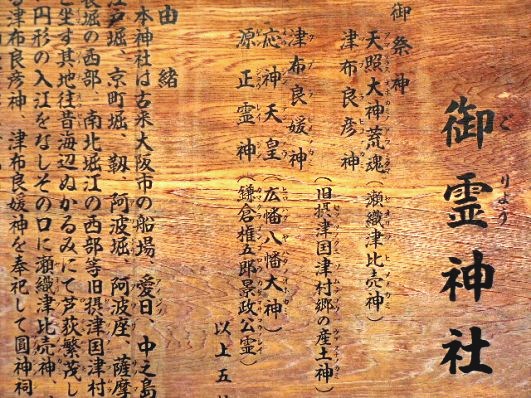 御霊神社
ごりょう
御祭神
天照大神荒魂（瀬織津比売神）
津布良彦神
（旧摂津国津村郷の産土神）
津布良媛神
応神天皇（広幡八幡大神）
源正霊神（鎌倉権五郎景政公霊）
以上五
由緒
本神社は古来大阪市の船場、愛日、中之島
江戸堀、京町堀、靱、阿波堀、阿波座、薩摩
長堀の西部、南北堀江の西部等旧摂津国津村
と坐す其地往昔海辺ぬかるみにて芦荻繁茂し
円形の入江をなしその口に瀬織津比売神、
津布良彦神、津布良媛神を奉祀して圓神祠